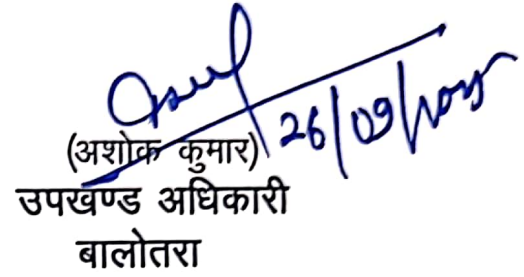 26/09/
(अशोक कुमार)
उपखण्ड अधिकारी
बालोतरा